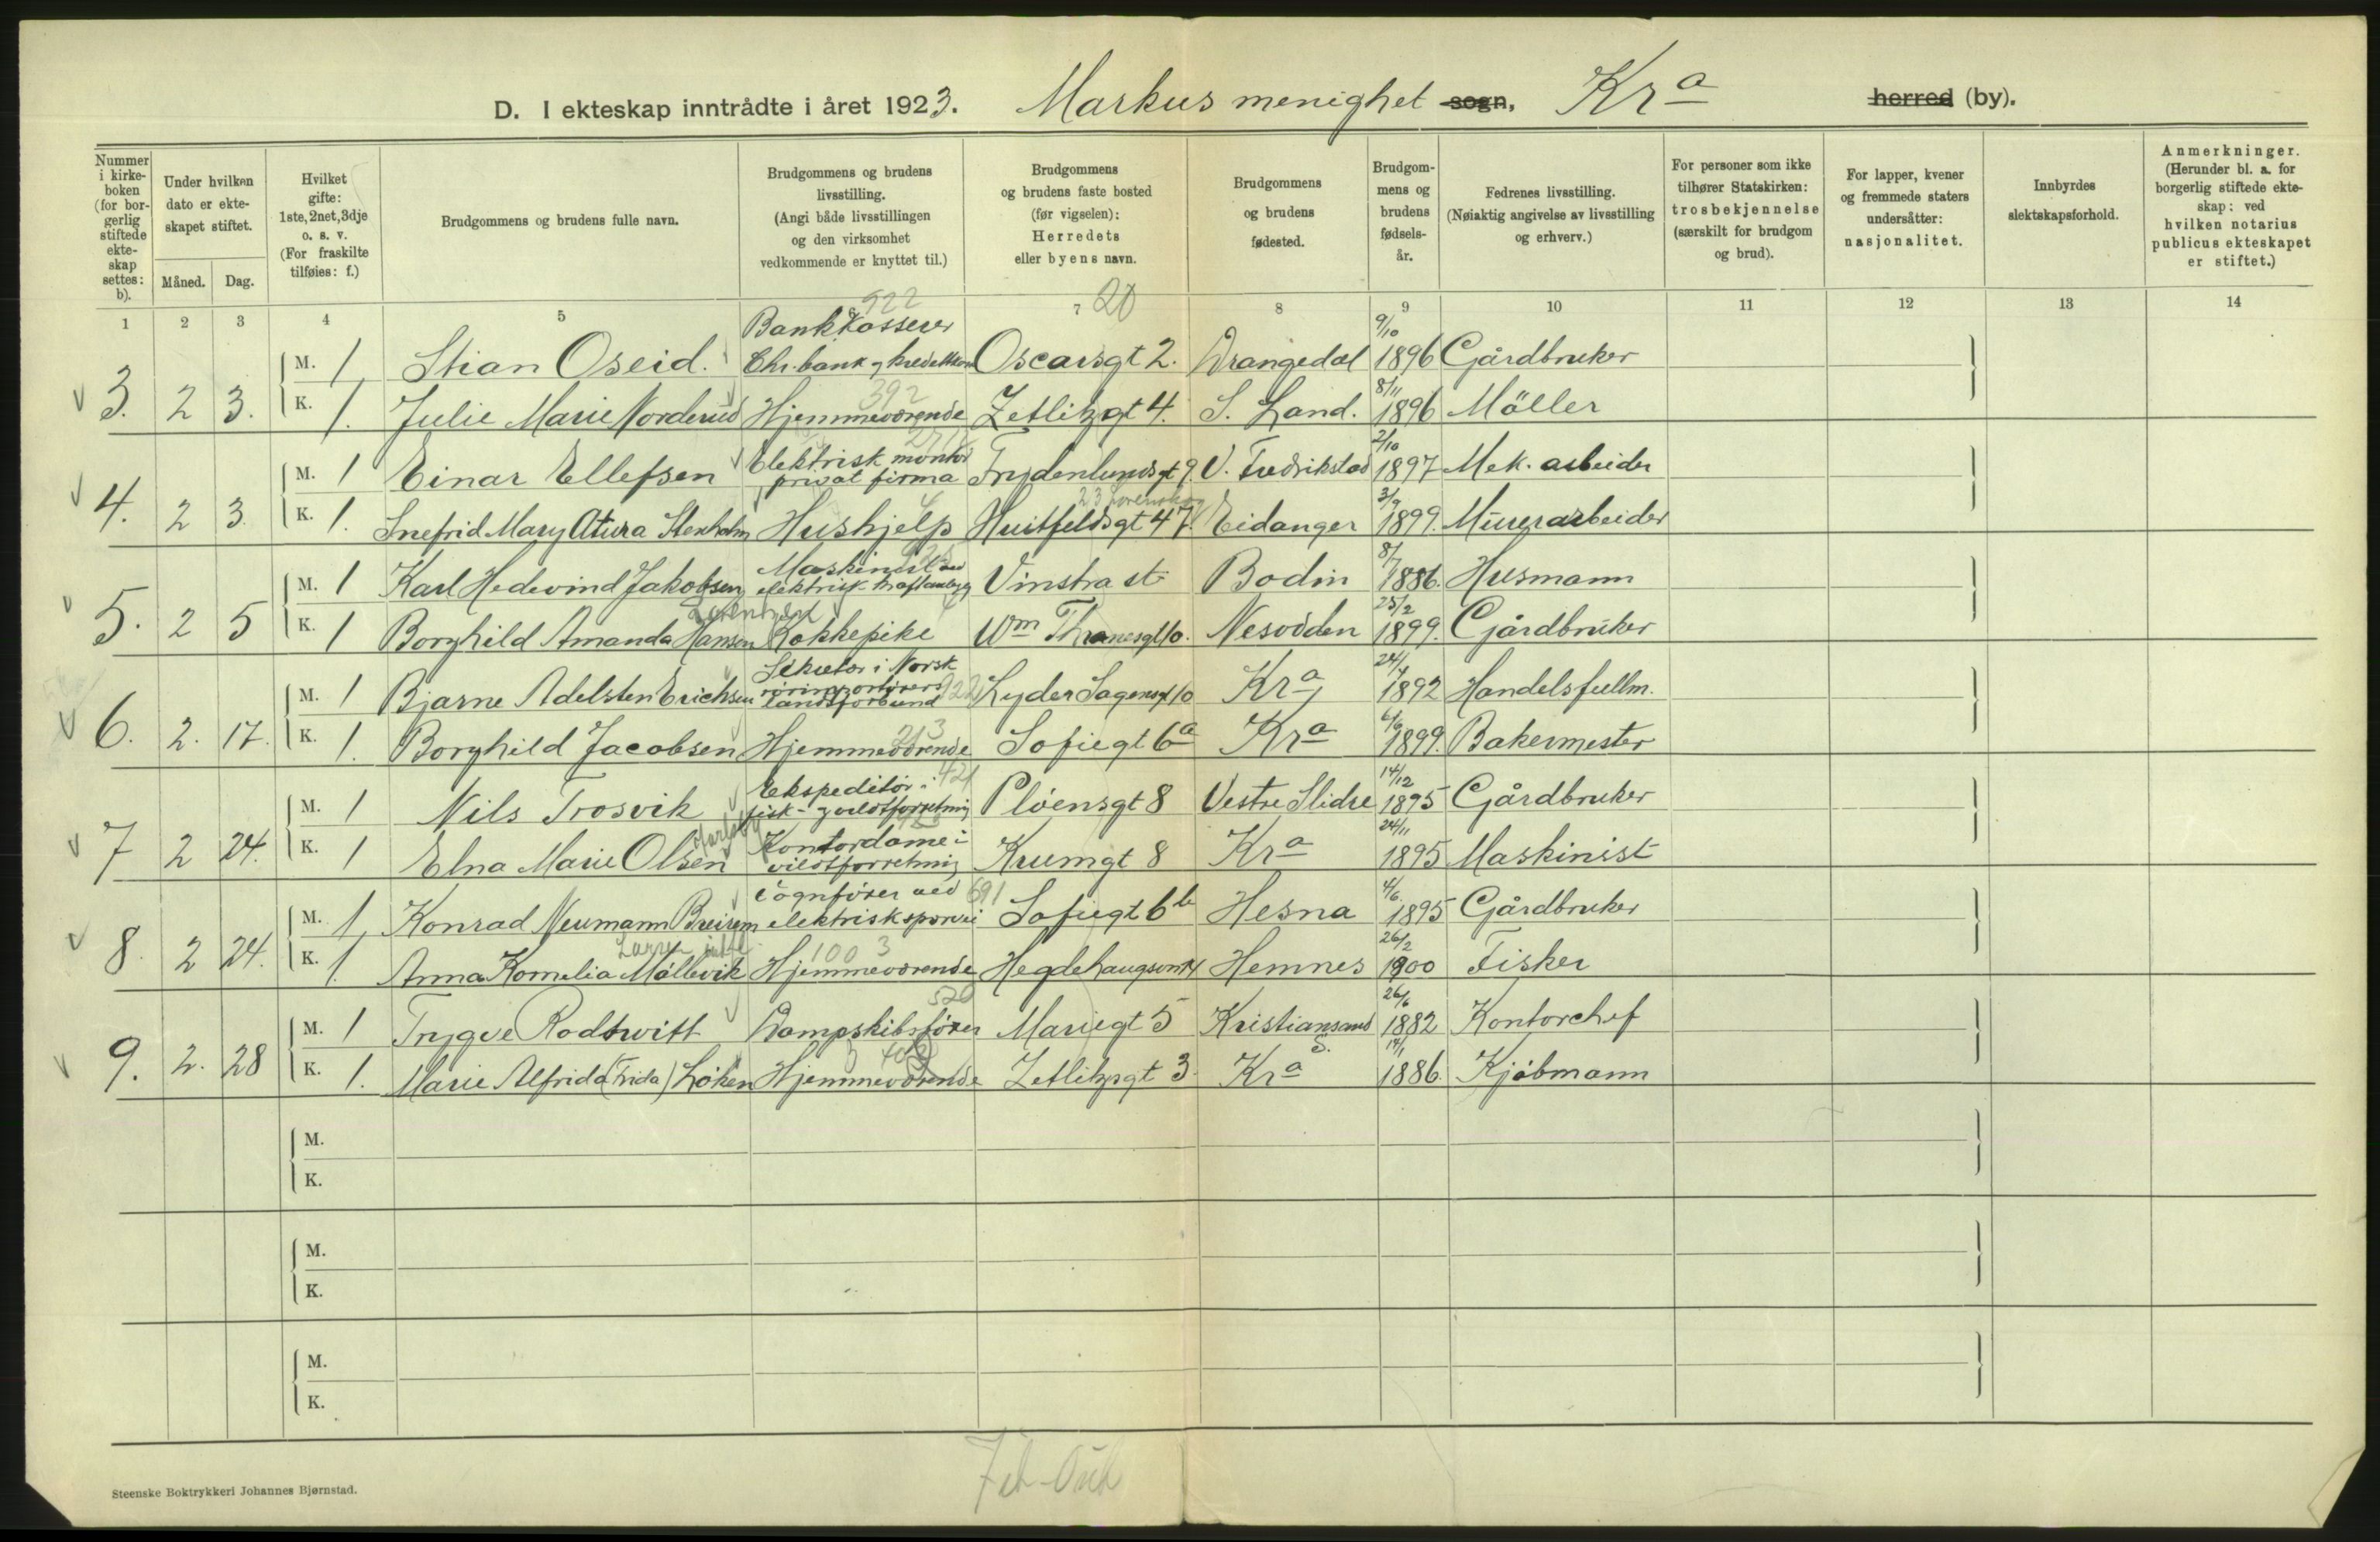 D. I ekteskap inntrådte i året 1923. Markus menighet sogn, Kra herred (by).
Nummer i kirkeboken (for borgerlig stiftede ekteskap settes: b).
Under hvilken dato er ekteskapet stiftet.
Måned. Dag.
Hvilket gifte: 1ste, 2net, 3dje o. s. v. (For fraskilte tilføies: f.)
Brudgommens og brudens fulle navn.
Brudgommens og brudens livsstilling. (Angi både livsstillingen og den virksomhet vedkommende er knyttet til.)
Brudgommens og brudens faste bosted (før vigselen): Herredets eller byens navn.
Brudgommens og brudens fødested.
Brudgommens og brudens fødselsår.
Fedrenes livsstilling. (Nøiaktig angivelse av livsstilling og erhverv.)
For personer som ikke tilhører Statskirken: trosbekjennelse (særskilt for brudgom og brud).
For lapper, kvener og fremmede staters undersåtter: nasjonalitet.
Innbyrdes slektskapsforhold.
Anmerkninger. (Herunder bl. a. for borgerlig stiftede ekteskap: ved hvilken notarius publicus ekteskapet er stiftet.)
1 2 3 4 5 6 7 20 8 9 10 11 12 13 14
922
3. 2 3. M. 1 Stian Oseid. Bankkasserer Chr. bank og Kreditkasse Oscarsgt 2. Drangedal 9/10 1896 Gårdbruker
392
K. 1. Julie Marie Norderud Hjemmeværende Zetlitzgt 4. S. Land. 8/11 1896 Möller
4. 2 3. M. 1 Einar Ellefsen Elektrisk montør privat firma Frydenlundsgt 9. V. Fredrikstad 2/10 1897 Mek. arbeider
23 Lørenskog
K. 1. Snefrid Mary Stenholm Hushjelp Huitfeldsgt 47. Eidanger 3/9 1899. Murerarbeider
5. 2 5 M. 1 Karl Hedevind Jakobsen Maskinist ved elektrisk kraftanlegg Vinstra st Bodin 8/7 1886. Husmann
K. 1 Borghild Amanda Hansen Kokkepike Wm Thranesgt 10. Nesodden 25/2 1899. Gårdbruker
6. 2. 17. M. 1 Bjarne Adelsten Erichsen Sekretær i Norsk rørimportørers landsforbund 922 Lyder Sagensgt 10 Kra 24/4 1892 Handelsfullm.
213
K. 1. Borghild Jacobsen Hjemmeværende Sofiegt 6a Kra 6/9 1899. Bakermester
421
7 2 24. M. 1 Nils Trosvik Ekspeditør i fisk- og vildtforretning Pløensgt 8 Vestre Slidre 14/12 1895 Gårdbruker
K. 1 Elna Marie Olsen Kontordame i vildtforretning Krumgt 8 Kra 24/11 1895 Maskinist
691
8. 2 24. M. 1 Konrad Neumann Breirem Vognfører ved elektrisk sporvei Sofiegt 6b Hesna 4/6 1895 Gårdbruker
1003
K. 1. Anna Kornelia Möllevik Hjemmeværende Hegdehaugsvn 14 Hemnes 26/2 1900 Fisker
520
9. 2. 28 M. 1 Trygve Rodtwitt Dampskibsfører Mariegt 5 Kristiansand S. 26/6 1882 Kontorchef
K. 1. Marie Alfrida (Frida) Løken Hjemmeværende Zetlitzgt 3. Kra 14/1 1886. Kjøbmann
M.
K.
M.
K.
M.
K.
Steenske Boktrykkeri Johannes Bjørnstad.